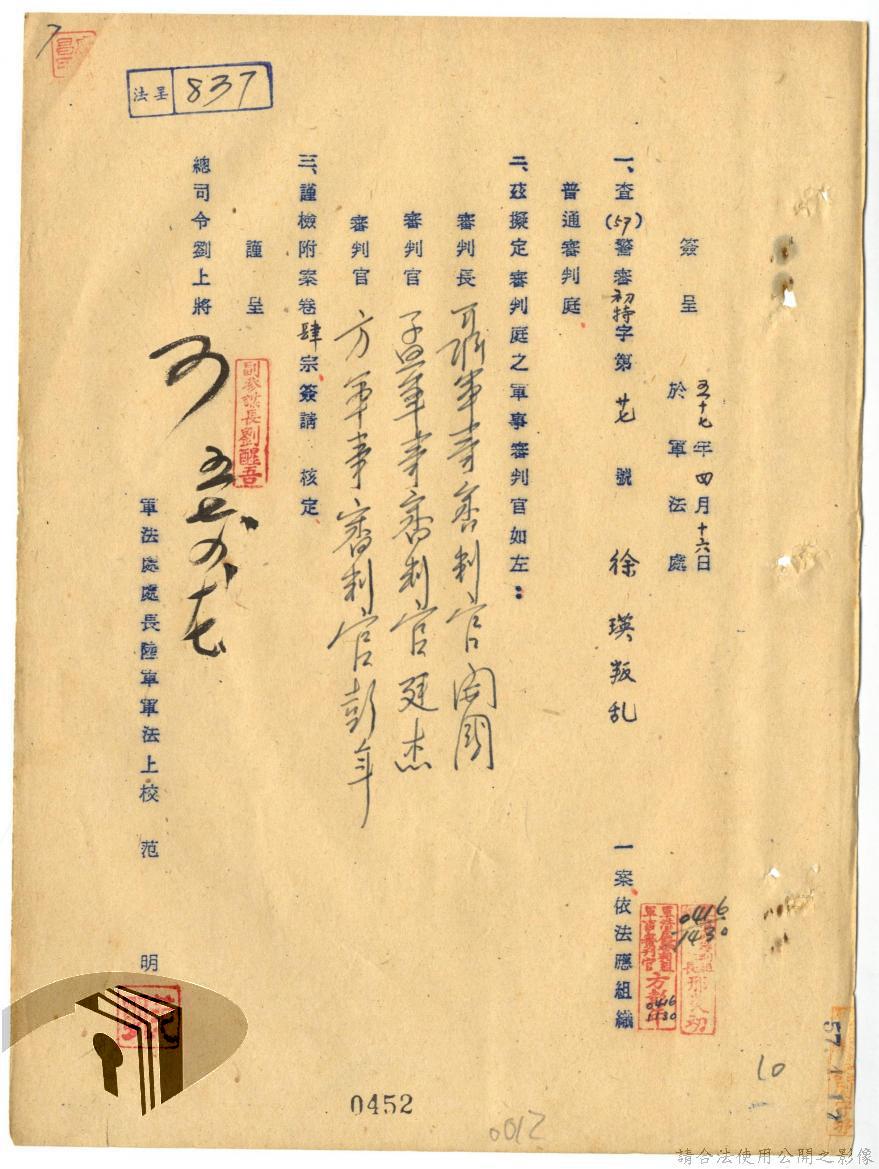 簽呈 五十七年四月十六日
於軍法處
一、查(57)警審初特字第廿七號 徐瑛叛乱 一案依法應組織
普通審判庭
二、茲擬定審判庭之軍事審判官如左：
審判長 聶軍事審判官開國
審判官 孟軍事審判官廷杰
審判官 方軍事審判官彭年
三、謹檢附案卷肆宗簽請 核定
謹呈
副參謀長劉醒吾
總司令劉上將
可 五七、四、十七
軍法處處長陸軍軍法上校 范 明
法呈 837
0416
1430
方彭年
0416
1130
57.1.17
10
0452
0012
請合法使用公開之影像